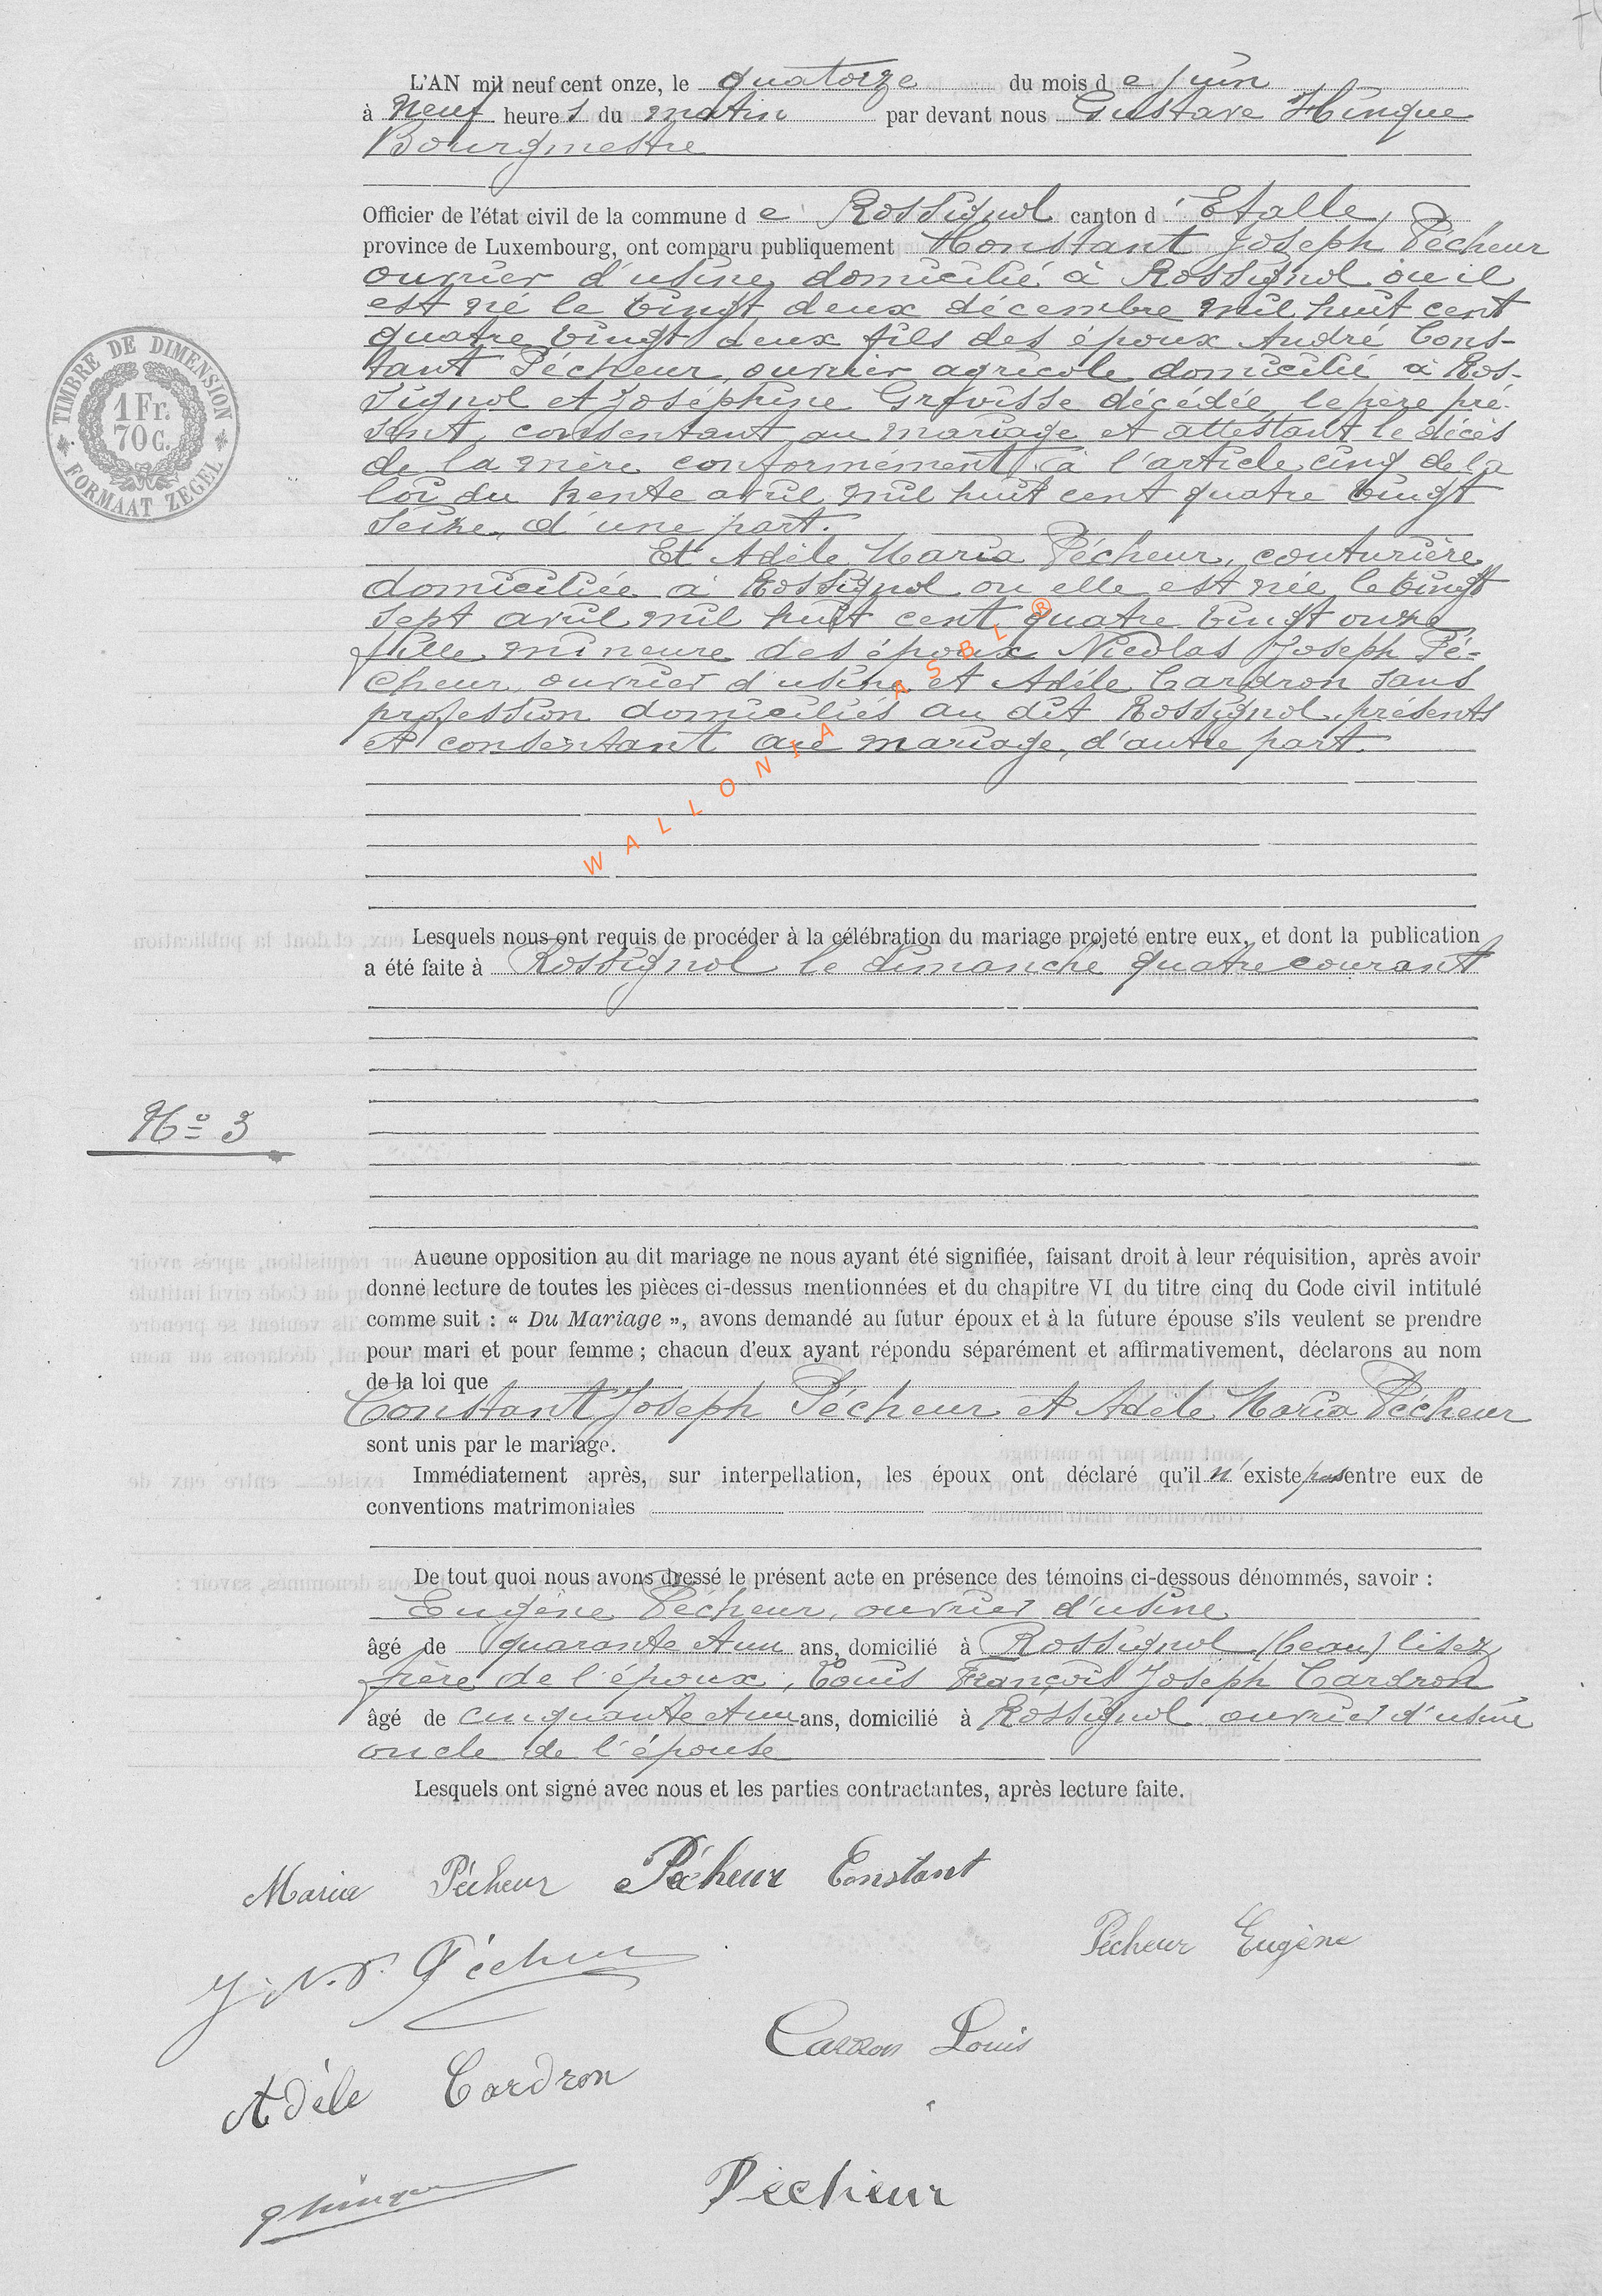 L'AN mil neuf cent onze, le quatorze du mois de juin
à neuf heures du matin par devant nous Gustave Hinque
Bourgmestre
Officier de l'état civil de la commune de Rossignol canton d'Etalle,
province de Luxembourg, ont comparu publiquement Constant Joseph Pécheur
ouvrier d'usine, domicilié à Rossignol où il
est né le vingt deux décembre mil huit cent
quatre vingt deux fils des époux André Cons-
tant Pécheur, ouvrier agricole domicilié à Ros-
signol et Joséphine Grévisse décédée, le père pré-
sent, consentant au mariage et attestant le décès
de la mère conformément à l'article cinq de la
loi du trente avril mil huit cent quatre vingt
seize, d'une part.
Et Adèle Maria Pécheur, couturière
domiciliée à Rossignol où elle est née le vingt
sept avril mil huit cent quatre vingt onze
fille mineure des époux Nicolas Joseph Pé-
cheur, ouvrier d'usine et Adèle Cardron sans
profession domiciliés au dit Rossignol, présents
et consentant au mariage, d'autre part.
Lesquels nous ont requis de procéder à la célébration du mariage projeté entre eux, et dont la publication
a été faite à Rossignol le dimanche quatre courant
Aucune opposition au dit mariage ne nous ayant été signifiée, faisant droit à leur réquisition, après avoir
donné lecture de toutes les pièces ci-dessus mentionnées et du chapitre VI du titre cinq du Code civil intitulé
comme suit : « Du Mariage », avons demandé au futur époux et à la future épouse s'ils veulent se prendre
pour mari et pour femme ; chacun d'eux ayant répondu séparément et affirmativement, déclarons au nom
de la loi que
Constant Joseph Pécheur et Adèle Maria Pécheur
sont unis par le mariage.
Immédiatement après, sur interpellation, les époux ont déclaré qu'il n'existe pas entre eux de
conventions matrimoniales
De tout quoi nous avons dressé le présent acte en présence des témoins ci-dessous dénommés, savoir :
Eugène Pécheur, ouvrier d'usine
âgé de quarante et un ans, domicilié à Rossignol (beau) lisez
frère de l'époux, Louis François Joseph Cardron
âgé de cinquante et un ans, domicilié à Rossignol ouvrier d'usine
oncle de l'épouse
Lesquels ont signé avec nous et les parties contractantes, après lecture faite.
Maria Pécheur Pécheur Constant
Pécheur Eugène
J. N. J. Pécheur
Cardron Louis
Adèle Cardron
Pécheur
GHinque
TIMBRE DE DIMENSION
1 Fr.
70 C.
FORMAAT ZEGEL
No 3
WALLONIA ASBL ®